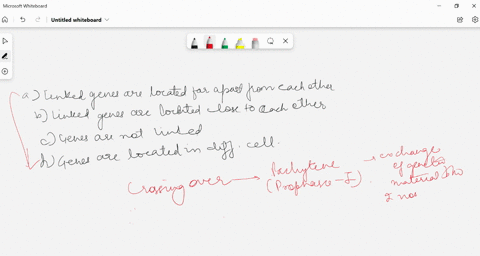 Microsoft Whiteboard
Untitled whiteboard
a) Linked genes are located far apart from each other
b) Linked genes are located close to each other
c) Genes are not linked
d) Genes are located in diff. cell.
Crossing over → Pachytene
(Prophase-I)
→ exchange
of genetic
material